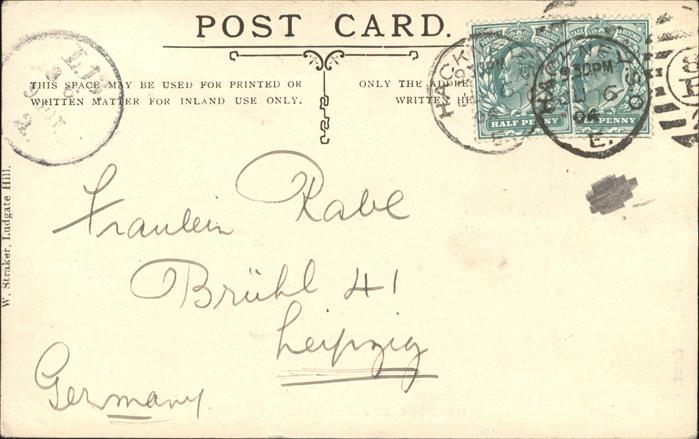 POST CARD.
THIS SPACE MAY BE USED FOR PRINTED OR
WRITTEN MATTER FOR INLAND USE ONLY.
ONLY THE ADDRE
WRITTEN
HALF PENNY
PENNY
HACK
9.30PM
6
E.
W. Straker, Ludgate Hill.
Fräulein Rabe
Brühl 41
Leipzig
Germany